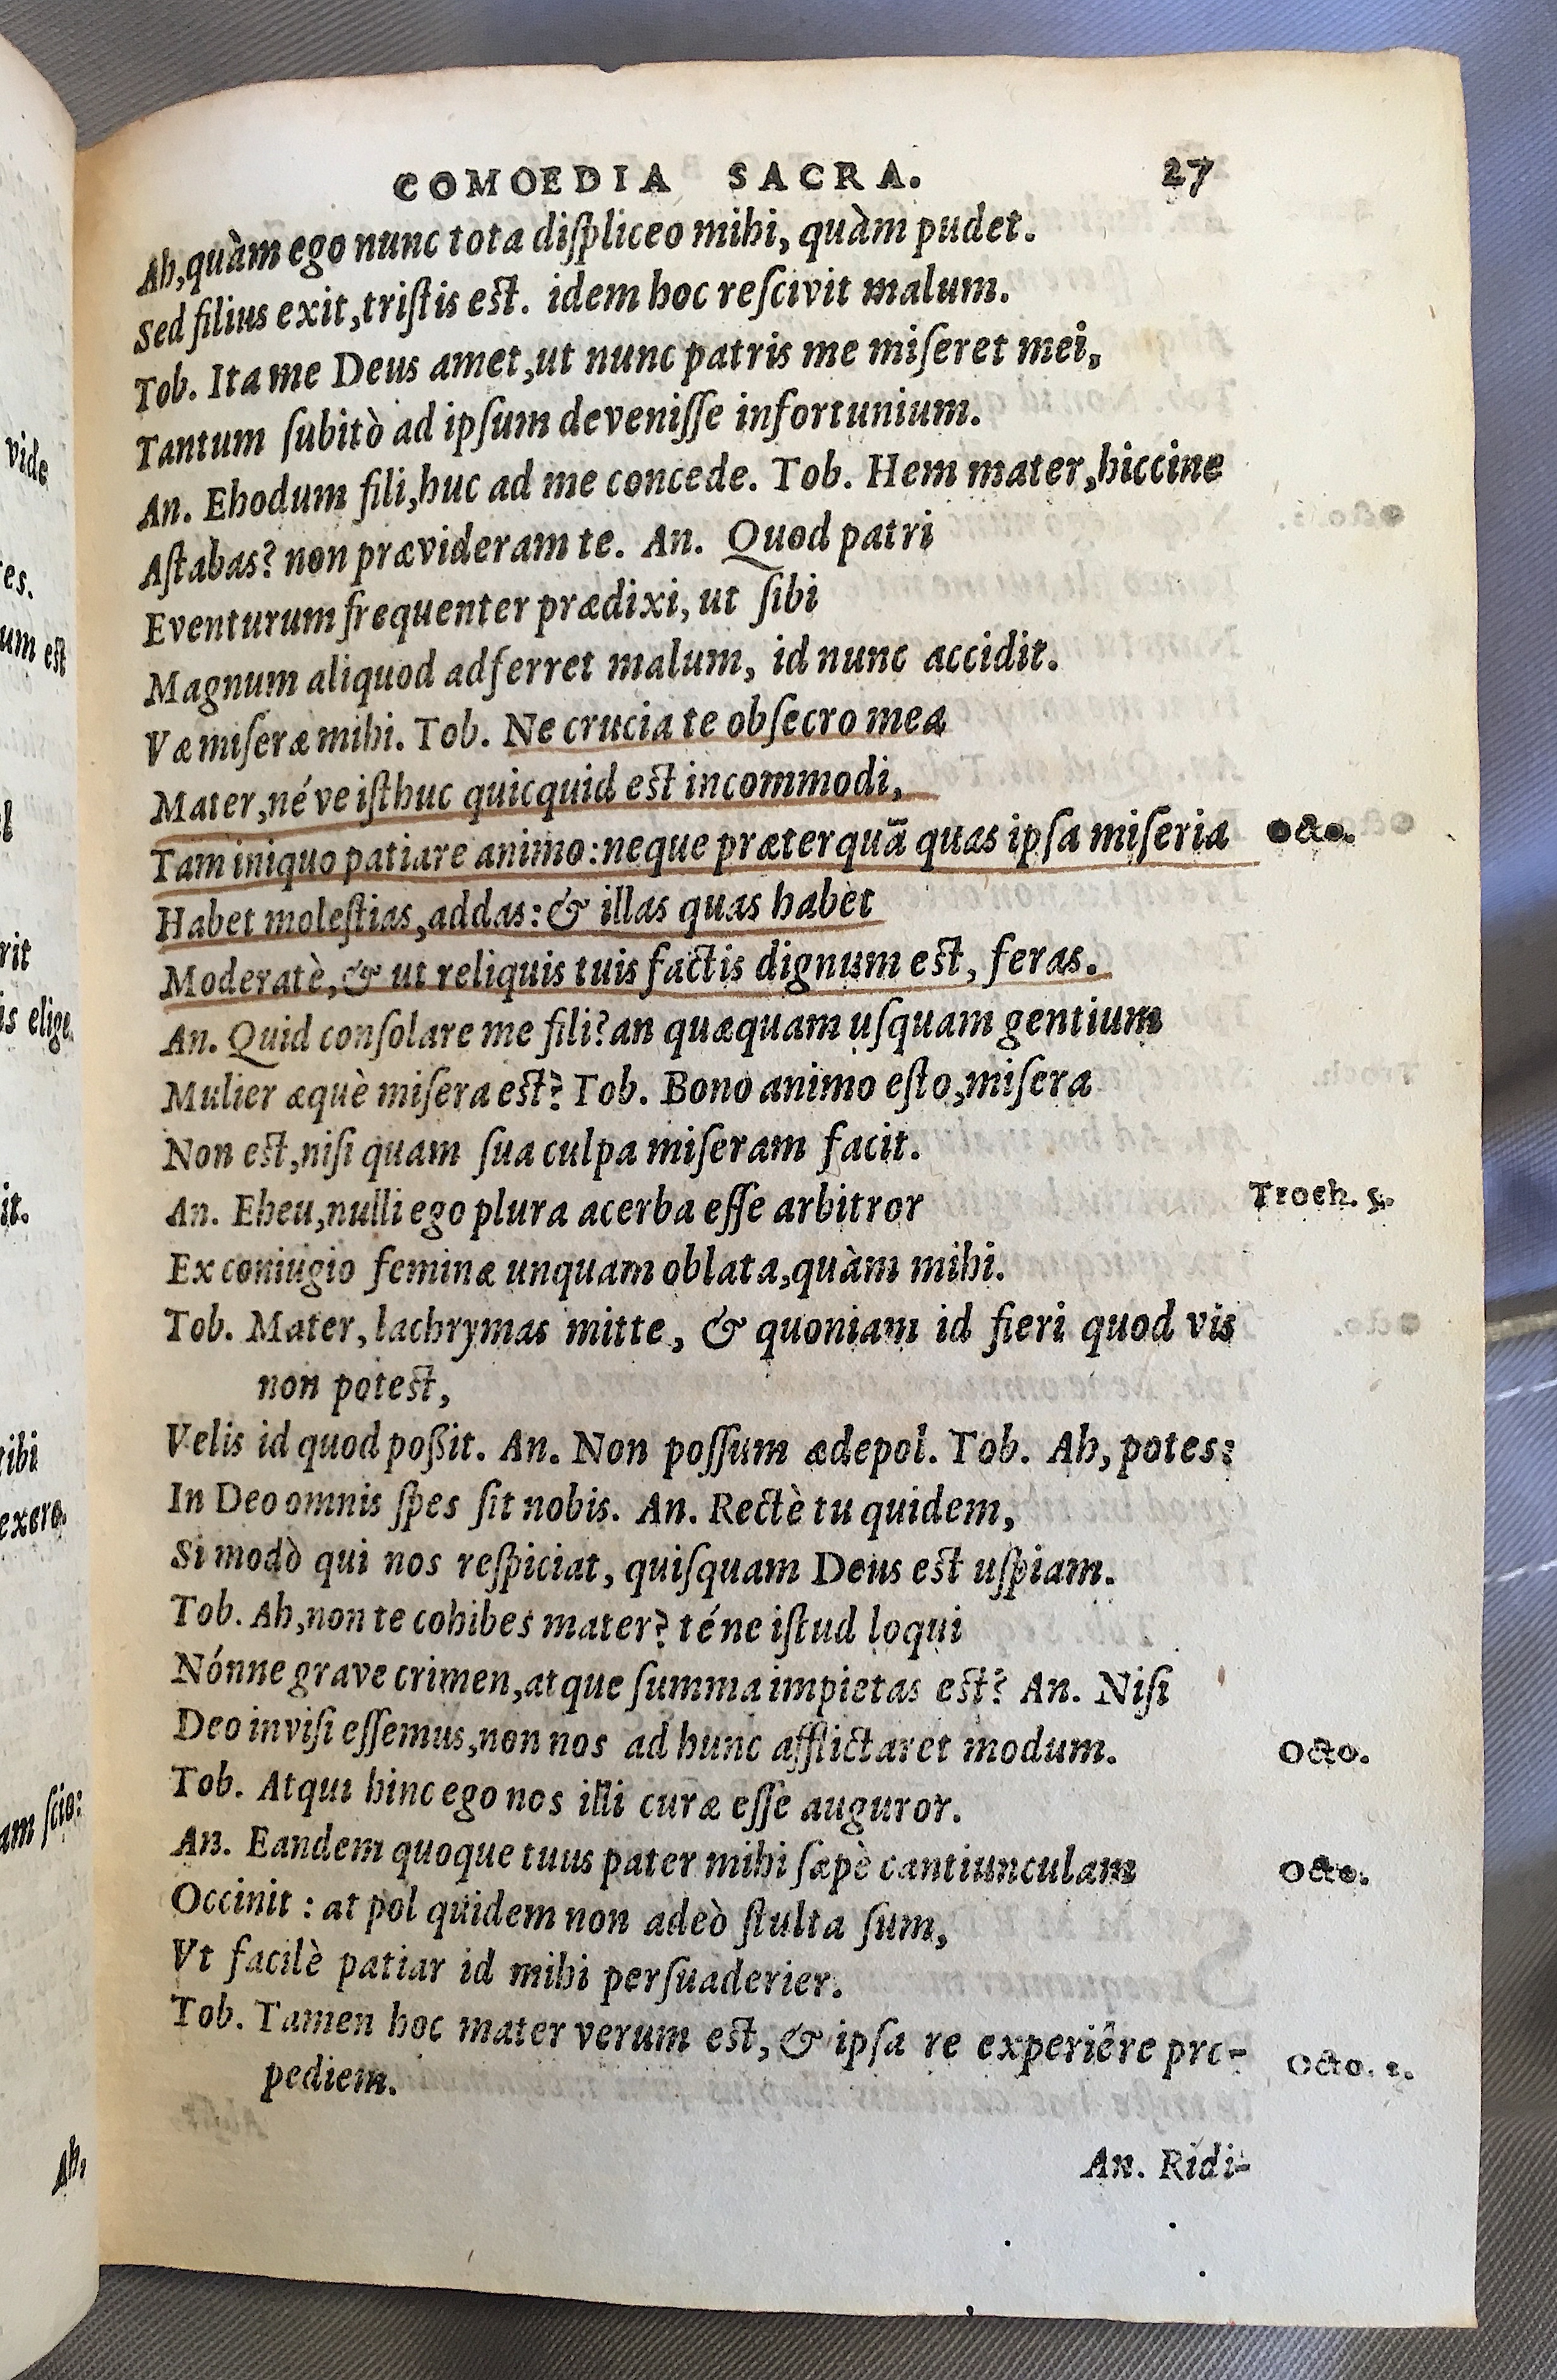 COMOEDIA SACRA. 27
Ah,quàm ego nunc tota diſpliceo mihi, quàm pudet.
Sed filius exit,triſtis eſt. idem hoc reſcivit malum.
Tob. Ita me Deus amet,ut nunc patris me miſeret mei,
Tantum ſubitò ad ipſum deveniſſe infortunium.
An. Ehodum fili,huc ad me concede. Tob. Hem mater,hiccine
Aſtabas? non prævideram te. An. Quod patri
Eventurum frequenter prædixi, ut ſibi
Magnum aliquod adferret malum, id nunc accidit.
Væ miſeræ mihi. Tob. Ne crucia te obſecro mea
Mater,né ve iſthuc quicquid eſt incommodi,
Tam iniquo patiare animo:neque præterquā quas ipſa miſeria Octo.
Habet moleſtias,addas:& illas quas habet
Moderatè,& ut reliquis tuis factis dignum eſt, feras.
An. Quid conſolare me fili? an quæquam uſquam gentium
Mulier æquè miſera eſt? Tob. Bono animo eſto,miſera
Non eſt,niſi quam ſua culpa miſeram facit.
An. Eheu,nulli ego plura acerba eſſe arbitror Troch. ſ.
Ex coniugio feminæ unquam oblata,quàm mihi.
Tob. Mater, lachrymas mitte, & quoniam id fieri quod vis
non poteſt,
Velis id quod poßit. An. Non poſſum ædepol. Tob. Ah, potes:
In Deo omnis ſpes ſit nobis. An. Rectè tu quidem,
Si modò qui nos reſpiciat, quiſquam Deus eſt uſpiam.
Tob. Ah,non te cohibes mater? téne iſtud loqui
Nónne grave crimen,atque ſumma impietas eſt? An. Niſi
Deo inviſi eſſemus,non nos ad hunc afflictaret modum. Octo.
Tob. Atqui hinc ego nos illi curæ eſſe auguror.
An. Eandem quoque tuus pater mihi ſæpè cantiunculam Octo.
Occinit : at pol quidem non adeò ſtulta ſum,
Vt facilè patiar id mihi perſuaderier.
Tob. Tamen hoc mater verum eſt, & ipſa re experiêre pro-
pediem. Octo. 2.
An. Ridi-
vide
es.
um eſt
rit
is elige
it.
tibi
exero.
am ſcio:
Ah,